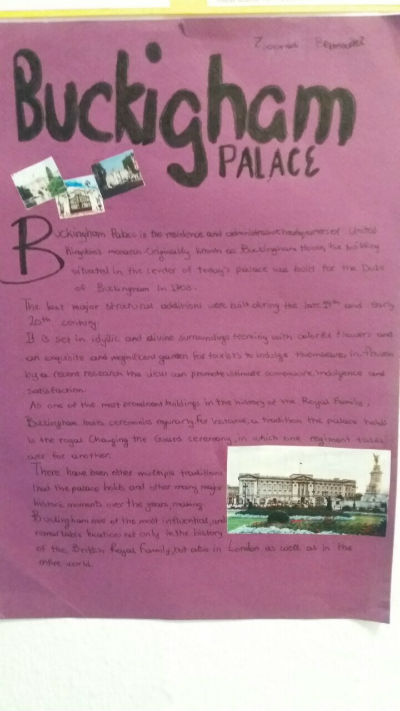 Buckigham
PALACE
Buckingham Palace is the residence and administrative headquarters of United
Kingdom's monarch. Originally known as Buckingham House, the building
situated in the center of today's palace was built for the Duke
of Buckingham in 1703.
The last major structural additions were built during the late 19th and early
20th century.
It is set in idyllic and divine surroundings teeming with colorful flowers and
an exquisite and magnificent garden for tourists to indulge themselves in. Proven
by a recent research this view can promote ultimate indulgence and
satisfaction.
As one of the most prominent buildings in the history of the Royal Family,
Buckingham hosts ceremonies regularly. For instance, a tradition the palace holds
is the royal Changing the Guard ceremony, in which one regiment takes
over for another.
There have been other multiple traditions
that the palace holds and other many major
historic moments over the years, making
Buckingham one of the most influential and
remarkable locations not only in the history
of the British Royal Family, but also in London as well as in the
entire world.